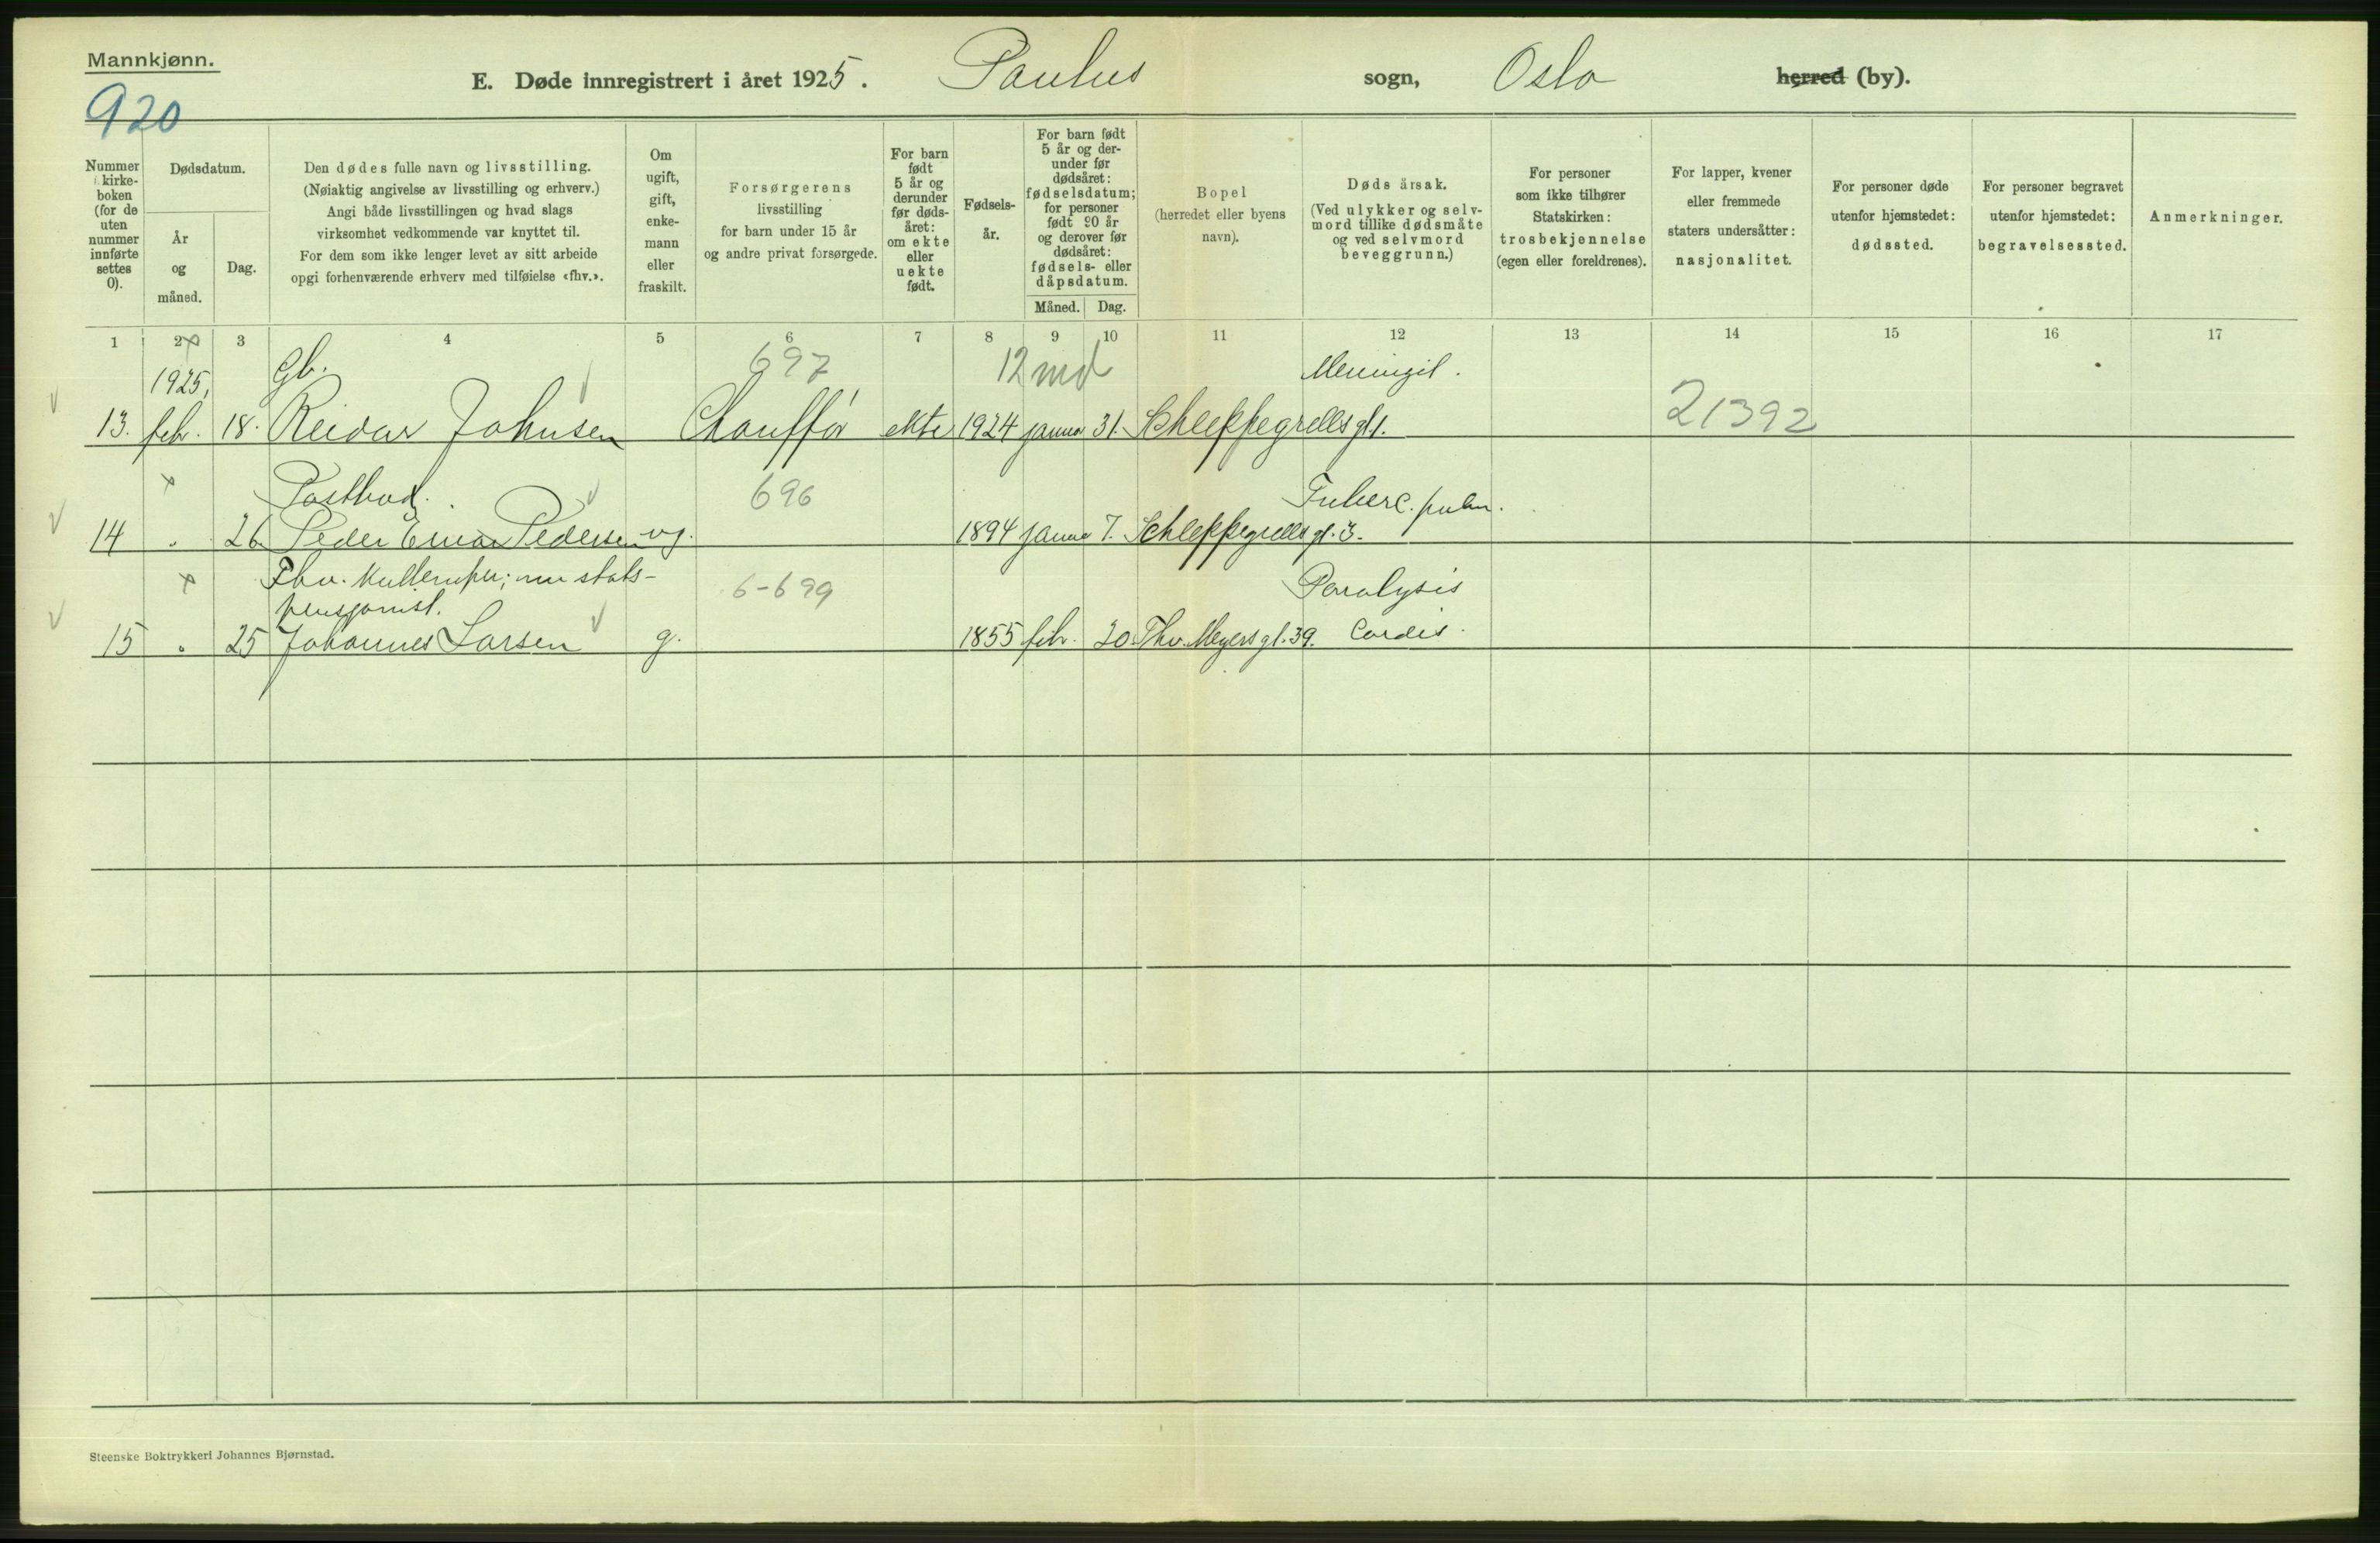 Mannkjønn.
920
E. Døde innregistrert i året 1925. Paulus sogn, Oslo herred (by).
Nummer i kirke-boken (for de uten nummer innførte settes 0).
Dødsdatum.
År og måned.
Dag.
Den dødes fulle navn og livsstilling.
(Nøiaktig angivelse av livsstilling og erhverv.)
Angi både livsstillingen og hvad slags
virksomhet vedkommende var knyttet til.
For dem som ikke lenger levet av sitt arbeide
opgi forhenværende erhverv med tilføielse «fhv.».
Om ugift, gift, enke-mann eller fraskilt.
Forsørgerens
livsstilling
for barn under 15 år
og andre privat forsørgede.
For barn født 5 år og derunder før døds-året: om ekte eller uekte født.
Fødsels-år.
For barn født 5 år og der-under før dødsåret: fødselsdatum; for personer født 20 år og derover før dødsåret: fødsels- eller dåpsdatum.
Måned. Dag.
Bopel
(herredet eller byens
navn).
Døds årsak.
(Ved ulykker og selv-
mord tillike dødsmåte
og ved selvmord
beveggrunn.)
For personer
som ikke tilhører
Statskirken:
trosbekjennelse
(egen eller foreldrenes).
For lapper, kvener
eller fremmede
staters undersåtter:
nasjonalitet.
For personer døde
utenfor hjemstedet:
dødssted.
For personer begravet
utenfor hjemstedet:
begravelsessted.
Anmerkninger.
1 2 3 4 5 6 7 8 9 10 11 12 13 14 15 16 17
1925, Gb. 697 12 md Meningit.
13. febr. 18. Reidar Johnsen Chauffør ekte 1924 janua 31. Schleppegrellsgt 1. 21392
Postbud. 696 Tuberc. pulm.
14 " 26. Peder Einar Pedersen ug. 1894 janua 7. Schleppegrells gt. 3.
Fhv. nu stats- 6-699 Paralysis
pensjonist.
15 " 25 Johannes Larsen g. 1855 febr. 20. Thv. Meyers gt. 39. Cordis.
Steenske Boktrykkeri Johannes Bjørnstad.